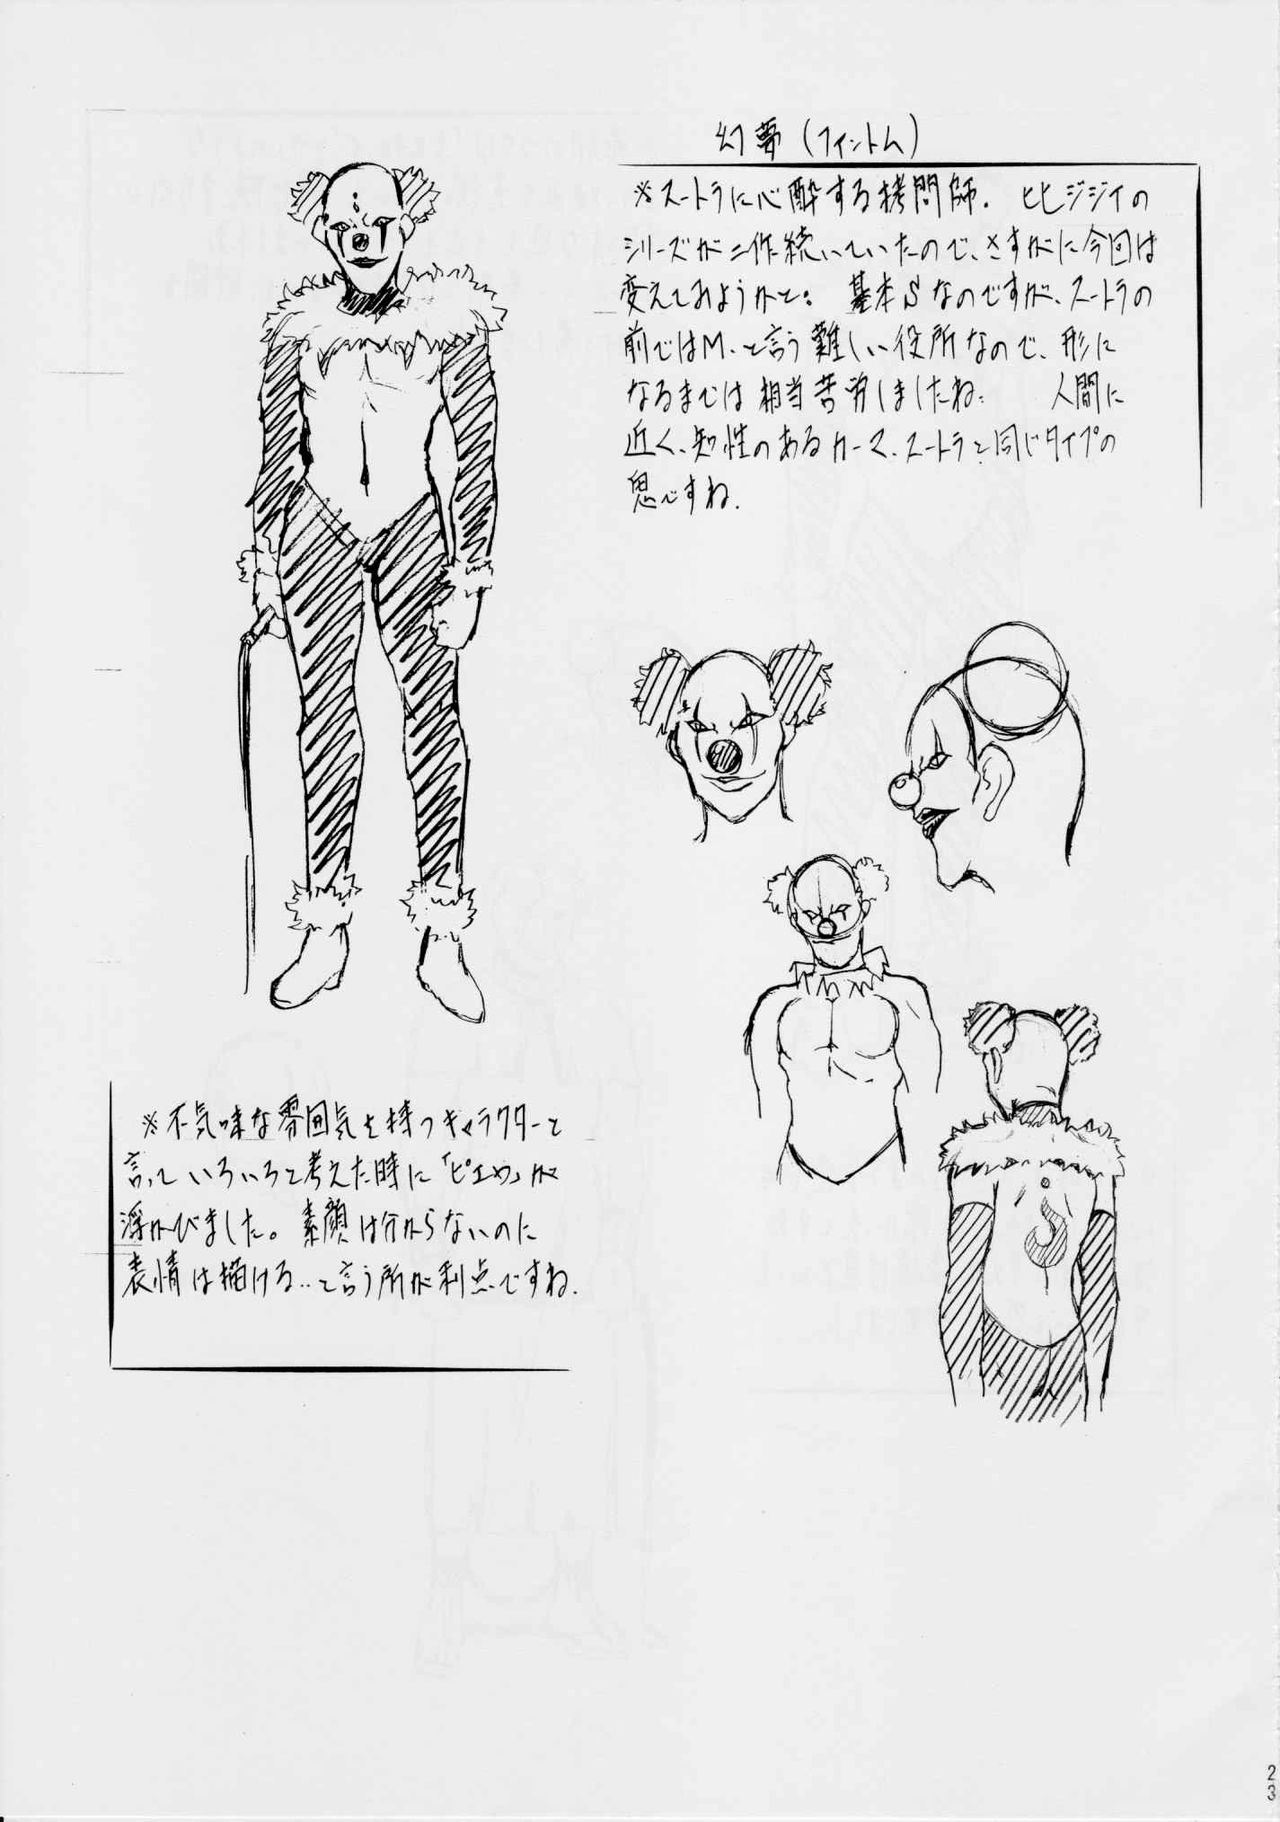 幻夢(ファントム)
※スートラに心酔する拷問師. ヒヒジジイの
シリーズが二作続いていたので、さすがに今回は
変えておようかと。 基本Sなのですが、スートラの
前ではM、と言う難しい役所なので、形に
なるまでは相当苦労しましたね. 人間に
近く、知性のあるカーマ、スートラと同じタイプの
鬼ですね.
※不気味な雰囲気を持つキャラクターと
言っていろいろと考えた時に「ピエロ」が
浮かびました。素顔は分からないのに
表情は描ける..と言う所が利点ですね.
23